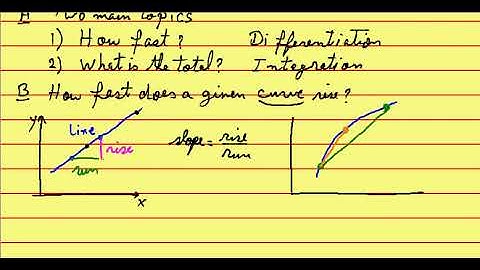 A Two main topics
1) How fast? Differentiation
2) What is the total? Integration
B How fast does a given curve rise?
y
Line
rise
run
x
slope = rise
run